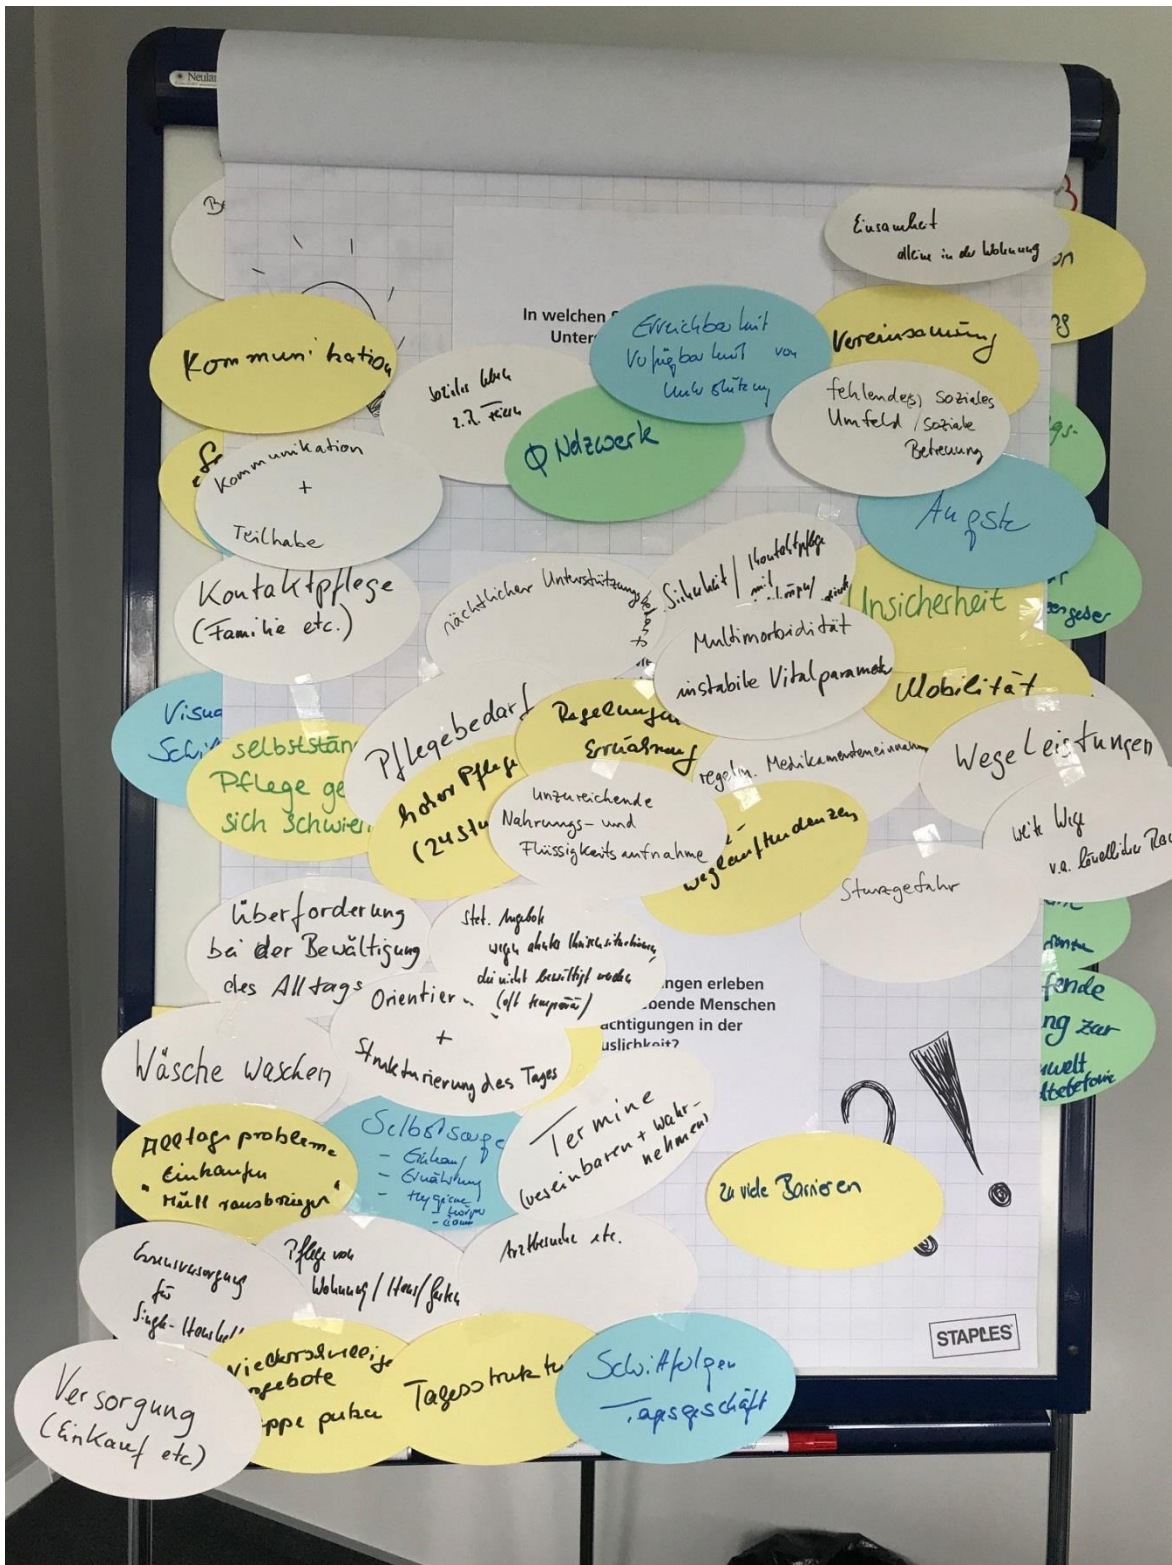 Neuland
Einsamkeit
alleine in der Wohnung
In welchen
Unters
Erreichbarkeit
Verfügbarkeit von
Unterstützung
Vereinsamung
Kommunikation
soziales Leben
z.B. Feiern
Ø Netzwerk
fehlende(s) soziales
Umfeld / soziale
Betreuung
Kommunikation
+
Teilhabe
Ängste
Kontaktpflege
(Familie etc.)
nächtlicher Unterstützungsbedarf
Sicherheit / Kontaktpflege
mit
Unsicherheit
Multimorbidität
instabile Vitalparameter
Mobilität
Visue
Schri
selbststän
Pflege ge
sich schwier
Pflegebedarf
hoher Pflege
(24 Stu
Regelungen
Ernährung
regelm. Medikamenteneinnahm
Wegeleistungen
unzureichende
Nahrungs- und
Flüssigkeitsaufnahme
Weglauftendenzen
weite Wege
v.a. ländlicher Rau
Sturzgefahr
Überforderung
bei der Bewältigung
des Alltags
stat. Angebote
wegen
die nicht bewältigt werden
(oft temporär)
ngen erleben
bende Menschen
ächtigungen in der
uslichkeit?
Orientier
+
Strukturierung des Tages
fende
ng zur
mwelt
Wäsche waschen
Termine
(vereinbaren + wahr-
nehmen)
Alltagsprobleme
Einkaufen
"Müll rausbringen"
Selbstsorge
- Einkauf
- Ernährung
- Hygiene
- Körper
zu viele Barrieren
Essensversorgung
für
Single-Haushalt
Pflege von
Wohnung / Haus / Garten
Arztbesuche etc.
STAPLES
Versorgung
(Einkauf etc.)
niederschwellige
ngebote
ppe putzen
Tagesstruktu
Schrittfolgen
Tagesgeschäft